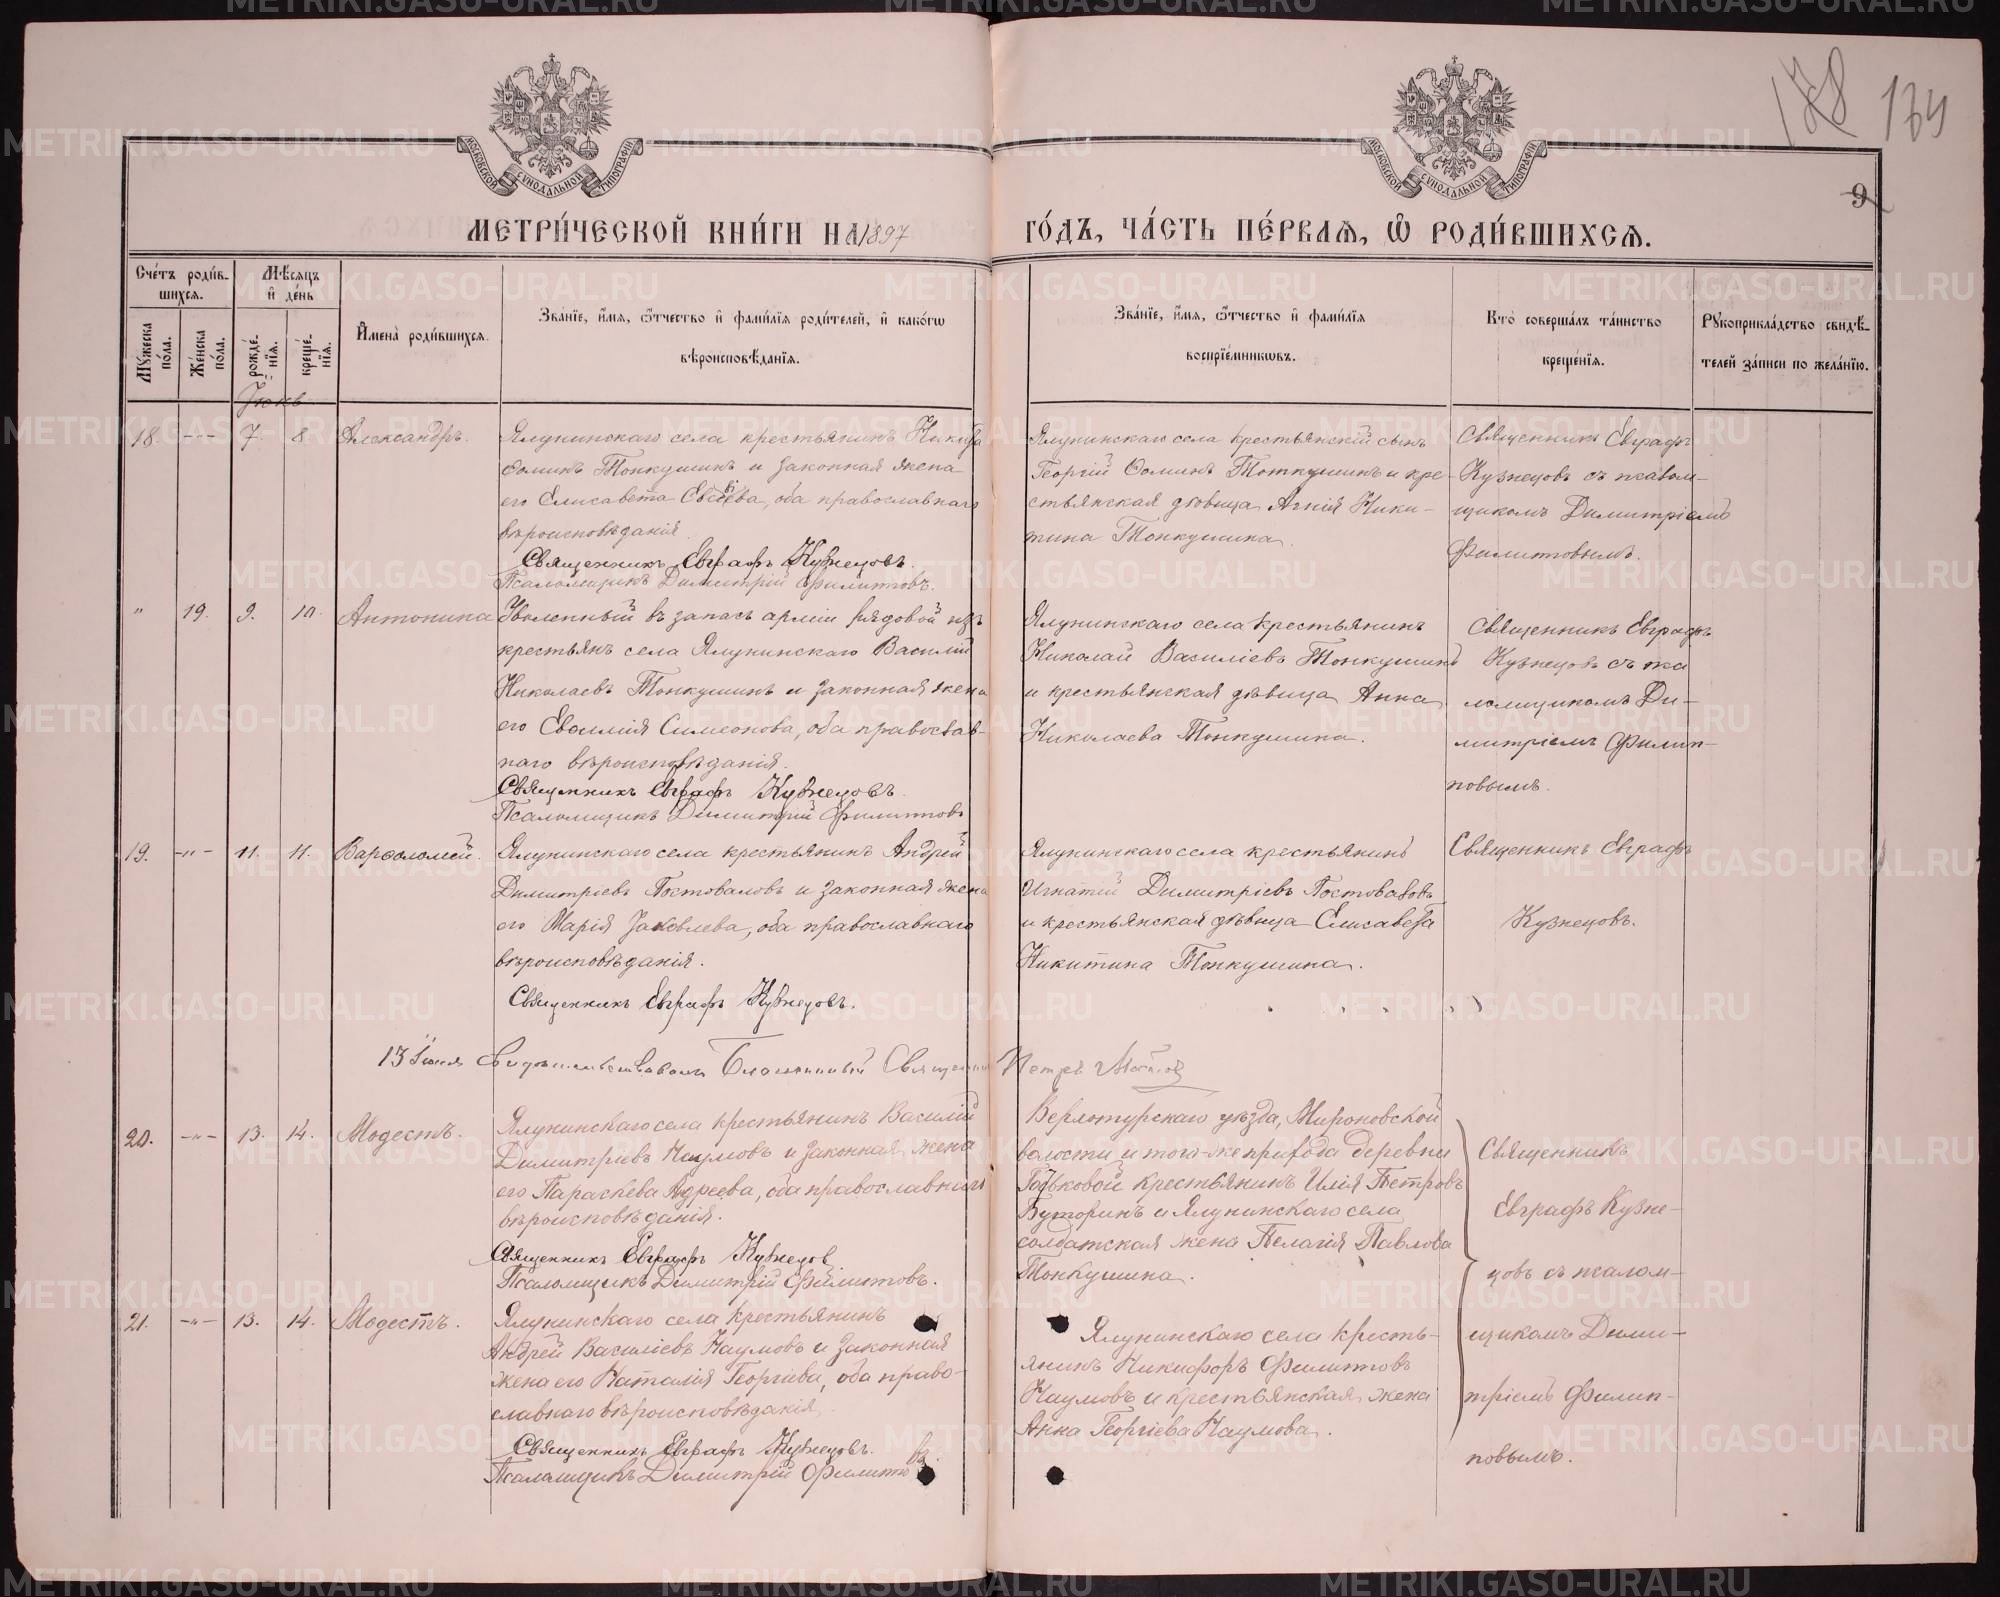 178 134
МОСКОВСКОЙ СѴНОДАЛЬНОЙ ТИПОГРАФІИ
МОСКОВСКОЙ СѴНОДАЛЬНОЙ ТИПОГРАФІИ
9
МЕТРИ́ЧЕСКОЙ КНИ́ГИ НА 1897
ГО́ДЪ, ЧА́СТЬ ПЕ́РВАѦ, Ѡ РОДИ́ВШИХСѦ.
Сче́тъ роди́в-
шихсѧ.
Мѣ́сѧцъ
и де́нь
Мꙋжеска по́ла.
Же́нска по́ла.
рожде́-нїѧ.
креще́-нїѧ.
Имена̀ роди́вшихсѧ.
Зва́нїе, и́мѧ, ѻ҆́тчество и фами́лїѧ роди́телей, и како́гѡ
вѣроисповѣ́данїѧ.
Зва́нїе, и́мѧ, ѻ҆́тчество и фами́лїѧ
воспрїе́мникѡвъ.
Кто̀ соверша́лъ та́инство
креще́нїѧ.
Рꙋкоприкла́дство свидѣ́-
телей за́писи по жела́нїю.
Іюнь
18. --- 7. 8. Александръ.
Ялунинскаго села крестьянинъ Никита
Ѳоминъ Тонкушинъ и законная жена
его Елисавета Евсѣева, оба православнаго
вѣроисповѣданія.
Священникъ Евграфъ Кузнецовъ.
Псаломщикъ Димитрій Филипповъ.
Ялунинскаго села крестьянскій сынъ
Георгій Ѳоминъ Тонкушинъ и кре-
стьянская дѣвица Агнія Ники-
тина Тонкушина.
Священникъ Евграфъ
Кузнецовъ съ псалом-
щикомъ Димитріемъ
Филипповымъ.
" 19. 9. 10. Антонина
Уволенный въ запасъ арміи рядовой изъ
крестьянъ села Ялунинскаго Василій
Николаевъ Тонкушинъ и законная жена
его Евѳимія Симеонова, оба православ-
наго вѣроисповѣданія.
Священникъ Евграфъ Кузнецовъ.
Псаломщикъ Димитрій Филипповъ
Ялунинскаго села крестьянинъ
Николай Василіевъ Тонкушинъ
и крестьянская дѣвица Анна
Николаева Тонкушина.
Священникъ Евграфъ
Кузнецовъ съ пса
ломщикомъ Ди-
митріемъ Филип-
повымъ.
19. -"- 11. 11. Варѳоломей.
Ялунинскаго села крестьянинъ Андрей
Димитріевъ Постоваловъ и законная жена
его Марія Іаковлева, оба православнаго
вѣроисповѣданія.
Священникъ Евграфъ Кузнецовъ.
Ялунинскаго села крестьянинъ
Игнатій Димитріевъ Постоваловъ
и крестьянская дѣвица Елисавета
Никитина Тонкушина.
Священникъ Евграфъ
Кузнецовъ.
13 Іюня Свидѣтельствовалъ Благочинный Священникъ Петръ
20. -"- 13. 14. Модестъ.
Ялунинскаго села крестьянинъ Василій
Димитріевъ Наумовъ и законная жена
его Параскева Адреева, оба православнаго
вѣроисповѣданія.
Священникъ Евграфъ Кузнецов
Псаломщикъ Димитрій Филипповъ.
Верхотурскаго уѣзда, Мироновской
волости и того-же прихода деревни
крестьянинъ Илія Петровъ
Буторинъ и Ялунинскаго села
солдатская жена Пелагія Павлова
Тонкушина.
Священникъ
Евграфъ Кузне-
цовъ съ псалом-
щикомъ Дими-
тріемъ Филип-
повымъ.
21. -"- 13. 14. Модестъ.
Ялунинскаго села крестьянинъ
Андрей Василіевъ Наумовъ и законная
жена его Наталія Георгіева, оба право-
славнаго вѣроисповѣданія.
Священникъ Евграфъ Кузнецовъ.
Псаломщикъ Димитрій Филипповъ.
Ялунинскаго села кресть-
янинъ Никифоръ Филипповъ
Наумовъ и крестьянская жена
Анна Георгіева Наумова.
METRIKI.GASO-URAL.RU